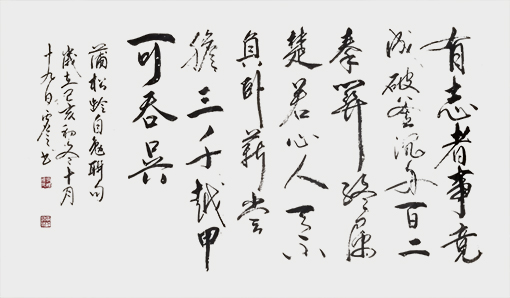 有志者事竟
成破釜沉舟百二
秦關終屬
楚苦心人天不
負卧薪嘗
膽三千越甲
可吞吴
蒲松龄自勉联句
歲在己亥初冬十月
十九日书